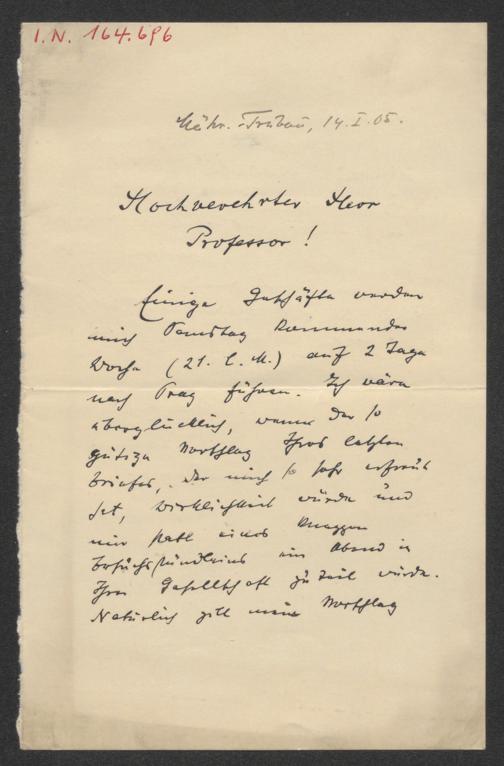 I.N. 164.696
Mähr.-Trübau, 14.I.05.
Hochverehrter Herr
Professor!
Einige Geschäfte werden
mich Samstag kommender
Woche (21. l. M.) auf 2 Tage
nach Prag führen. Ich wäre
überglücklich, wenn der so
gütige Vorschlag Ihres letzten
Briefes, der mich so sehr erfreut
hat, Wirklichkeit würde und
mir statt eines knappen
Besuchsstündleins ein Abend in
Ihrer Gesellschaft zu teil würde.
Natürlich gilt mein Vorschlag